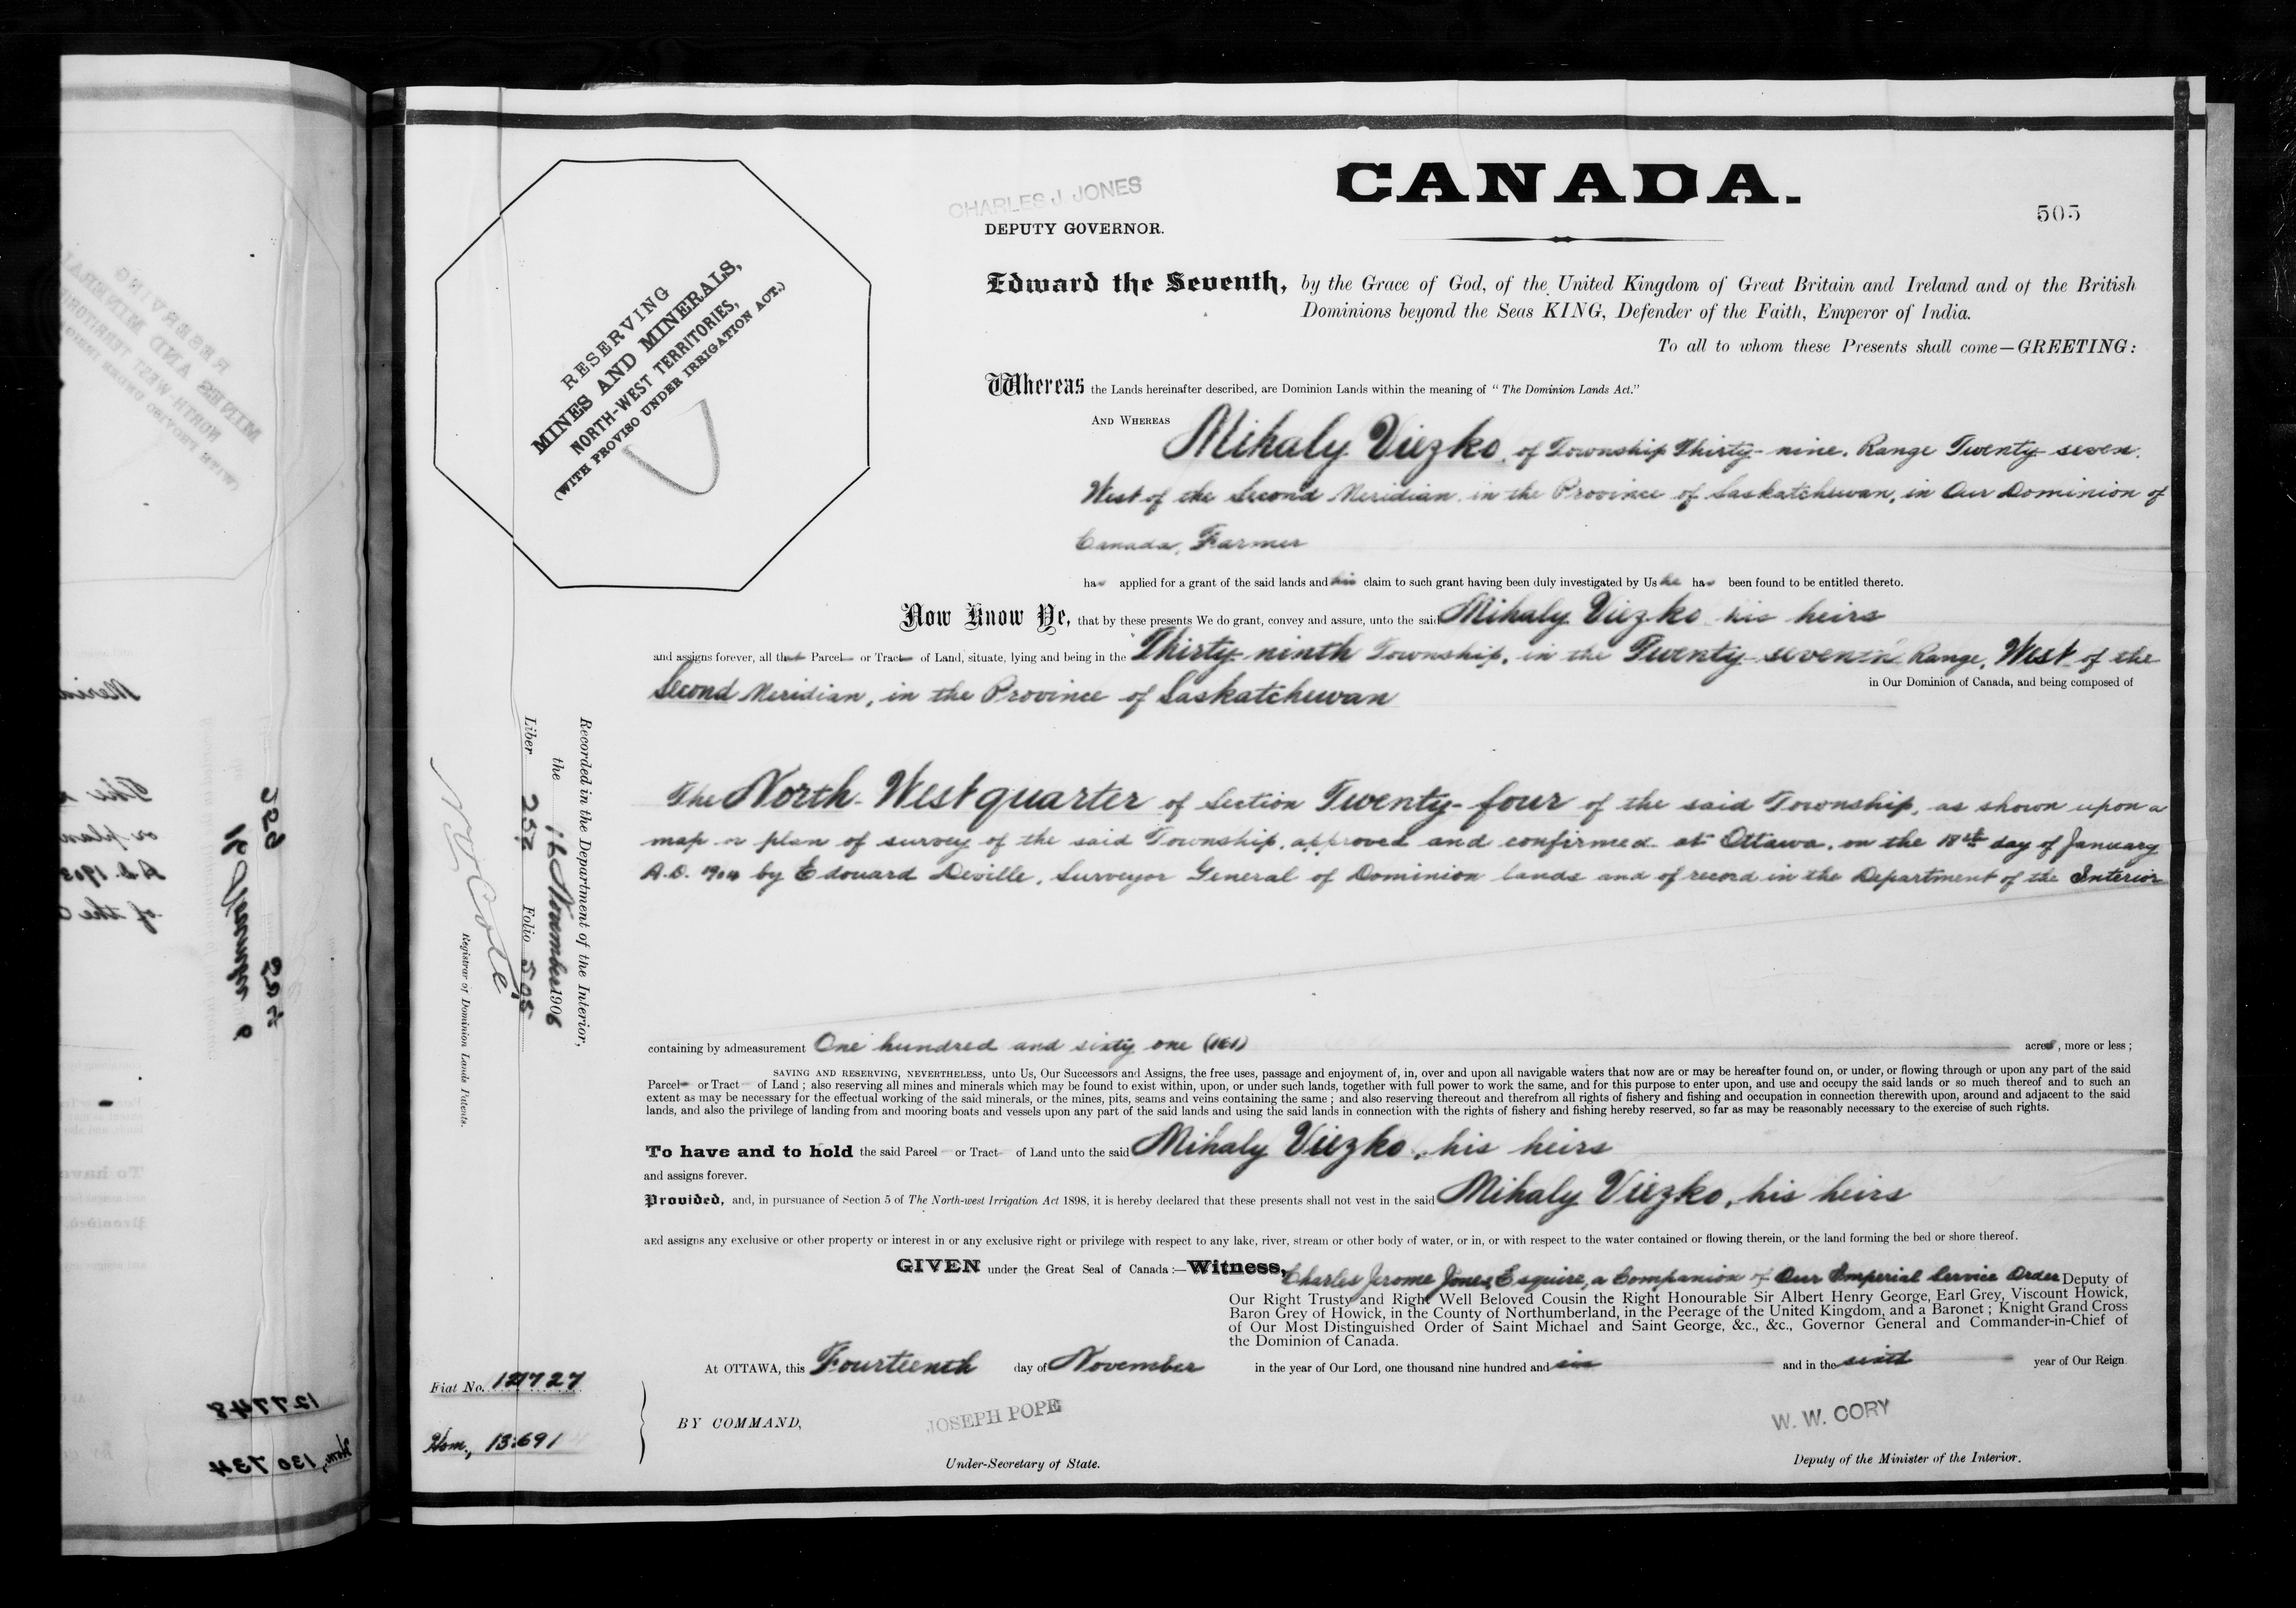 CANADA.
CHARLES J. JONES
DEPUTY GOVERNOR.
505
RESERVING
MINES AND MINERALS,
NORTH-WEST TERRITORIES,
(WITH PROVISO UNDER IRRIGATION ACT.)
Edward the Seventh, by the Grace of God, of the United Kingdom of Great Britain and Ireland and of the British
Dominions beyond the Seas KING, Defender of the Faith, Emperor of India.
To all to whom these Presents shall come—GREETING:
Whereas the Lands hereinafter described, are Dominion Lands within the meaning of "The Dominion Lands Act."
AND WHEREAS
Mihaly Viezko, of Township Thirty-nine, Range Twenty-seven,
West of the Second Meridian, in the Province of Saskatchewan, in Our Dominion of
Canada, Farmer
has applied for a grant of the said lands and his claim to such grant having been duly investigated by Us he has been found to be entitled thereto.
Now Know Ye, that by these presents We do grant, convey and assure, unto the said Mihaly Viezko his heirs
and assigns forever, all that Parcel or Tract of Land, situate, lying and being in the Thirty-ninth Township, in the Twenty-seventh Range, West of the
Second Meridian, in the Province of Saskatchewan in Our Dominion of Canada, and being composed of
The North-West quarter of Section Twenty-four of the said Township, as shown upon a
map or plan of survey of the said Township, approved and confirmed at Ottawa, on the 18th day of January
A.D. 1904 by Edouard Deville, Surveyor General of Dominion lands and of record in the Department of the Interior
containing by admeasurement One hundred and sixty one (161) acres, more or less;
SAVING AND RESERVING, NEVERTHELESS, unto Us, Our Successors and Assigns, the free uses, passage and enjoyment of, in, over and upon all navigable waters that now are or may be hereafter found on, or under, or flowing through or upon any part of the said
Parcel or Tract of Land; also reserving all mines and minerals which may be found to exist within, upon, or under such lands, together with full power to work the same, and for this purpose to enter upon, and use and occupy the said lands or so much thereof and to such an
extent as may be necessary for the effectual working of the said minerals, or the mines, pits, seams and veins containing the same; and also reserving thereout and therefrom all rights of fishery and fishing and occupation in connection therewith upon, around and adjacent to the said
lands, and also the privilege of landing from and mooring boats and vessels upon any part of the said lands and using the said lands in connection with the rights of fishery and fishing hereby reserved, so far as may be reasonably necessary to the exercise of such rights.
To have and to hold the said Parcel or Tract of Land unto the said Mihaly Viezko, his heirs
and assigns forever.
Provided, and, in pursuance of Section 5 of The North-west Irrigation Act 1898, it is hereby declared that these presents shall not vest in the said Mihaly Viezko, his heirs
and assigns any exclusive or other property or interest in or any exclusive right or privilege with respect to any lake, river, stream or other body of water, or in, or with respect to the water contained or flowing therein, or the land forming the bed or shore thereof.
GIVEN under the Great Seal of Canada:—Witness, Charles Jerome Jones, Esquire, a Companion of Our Imperial Service Order Deputy of
Our Right Trusty and Right Well Beloved Cousin the Right Honourable Sir Albert Henry George, Earl Grey, Viscount Howick,
Baron Grey of Howick, in the County of Northumberland, in the Peerage of the United Kingdom, and a Baronet; Knight Grand Cross
of Our Most Distinguished Order of Saint Michael and Saint George, &c., &c., Governor General and Commander-in-Chief of
the Dominion of Canada.
At OTTAWA, this Fourteenth day of November in the year of Our Lord, one thousand nine hundred and six and in the sixth year of Our Reign
BY COMMAND,
JOSEPH POPE
Under-Secretary of State.
W. W. CORY
Deputy of the Minister of the Interior.
Recorded in the Department of the Interior,
the 16 November 1906
Liber 252 Folio 505
N O Coté,
Registrar of Dominion Lands Patents.
Fiat No. 127727
Hom., 13691
127748
Hom., 130734